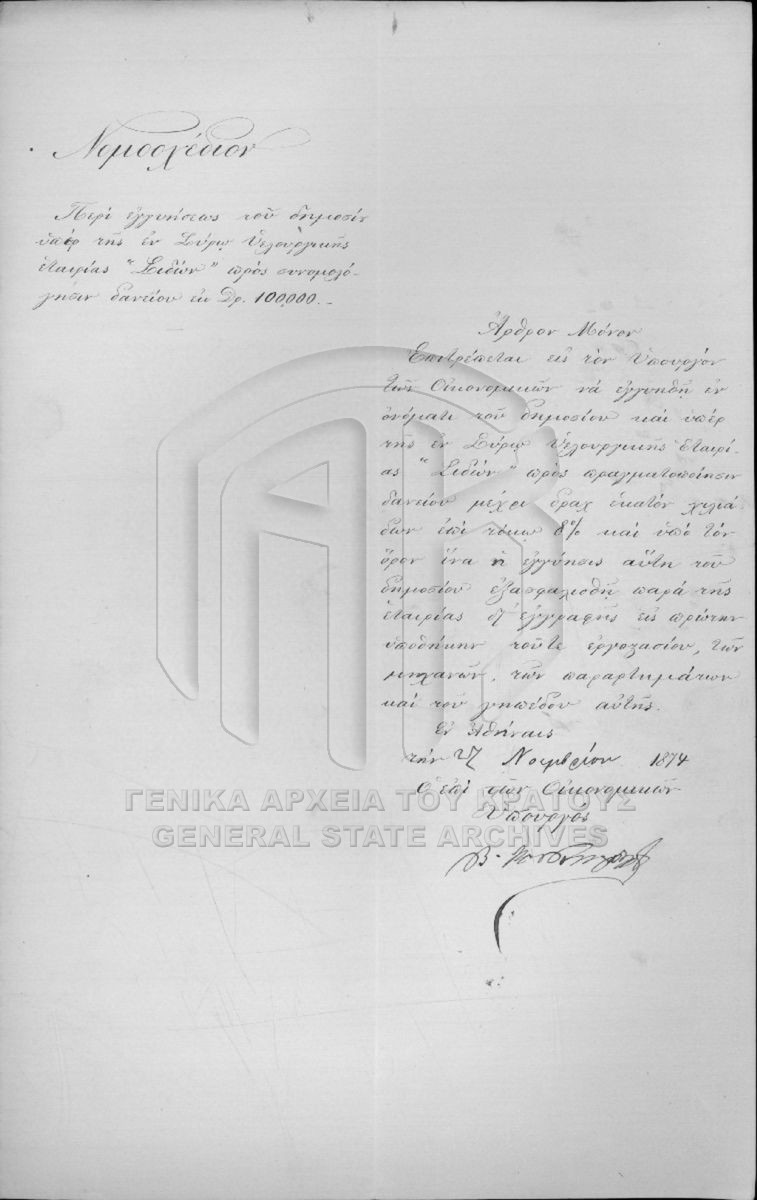 Νομοσχέδιον
Περὶ ἐγγυήσεως τοῦ δημοσίου
ὑπὲρ τῆς ἐν Σύρῳ Ὑελουργικῆς
ἑταιρίας "Σιδὼν" πρὸς συνομολό-
γησιν δανείου ἐκ Δρ. 100,000.-
Ἄρθρον Μόνον
Ἐπιτρέπεται εἰς τὸν Ὑπουργὸν
τῶν Οἰκονομικῶν νὰ ἐγγυηθῇ ἐν
ὀνόματι τοῦ δημοσίου καὶ ὑπὲρ
τῆς ἐν Σύρῳ Ὑελουργικῆς Ἑταιρί-
ας "Σιδὼν" πρὸς πραγματοποίησιν
δανείου μέχρι δραχ ἑκατὸν χιλιά
δων ἐπὶ τόκῳ 8% καὶ ὑπὸ τὸν
ὅρον ἵνα ἡ ἐγγύησις αὕτη τοῦ
δημοσίου ἐξασφαλισθῇ παρὰ τῆς
ἑταιρίας δι' ἐγγραφῆς εἰς πρώτην
ὑποθήκην τοῦτε ἐργοστασίου, τῶν
μηχανῶν, τῶν παραρτημάτων
καὶ τοῦ γηπέδου αὐτῆς.
Ἐν Ἀθήναις
τὴν 27 Νοεμβρίου 1874
Ὁ ἐπὶ τῶν Οἰκονομικῶν
Ὑπουργός
ΓΕΝΙΚΑ ΑΡΧΕΙΑ ΤΟΥ ΚΡΑΤΟΥΣ
GENERAL STATE ARCHIVES